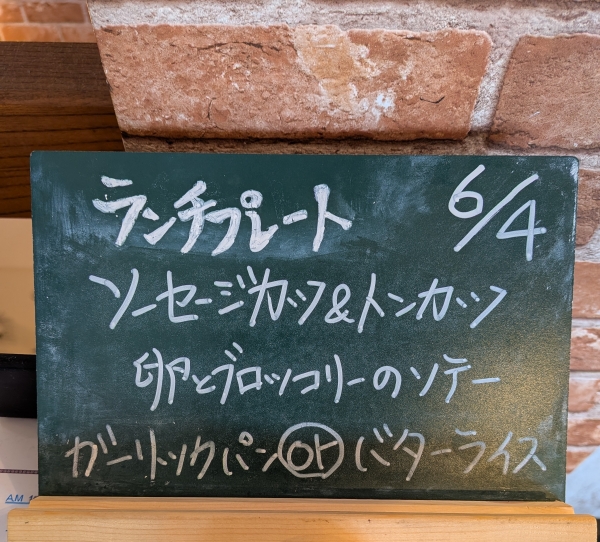 ランチプレート 6/4
ソーセージカツ&トンカツ
卵とブロッコリーのソテー
ガーリックパン or バターライス
A.M.